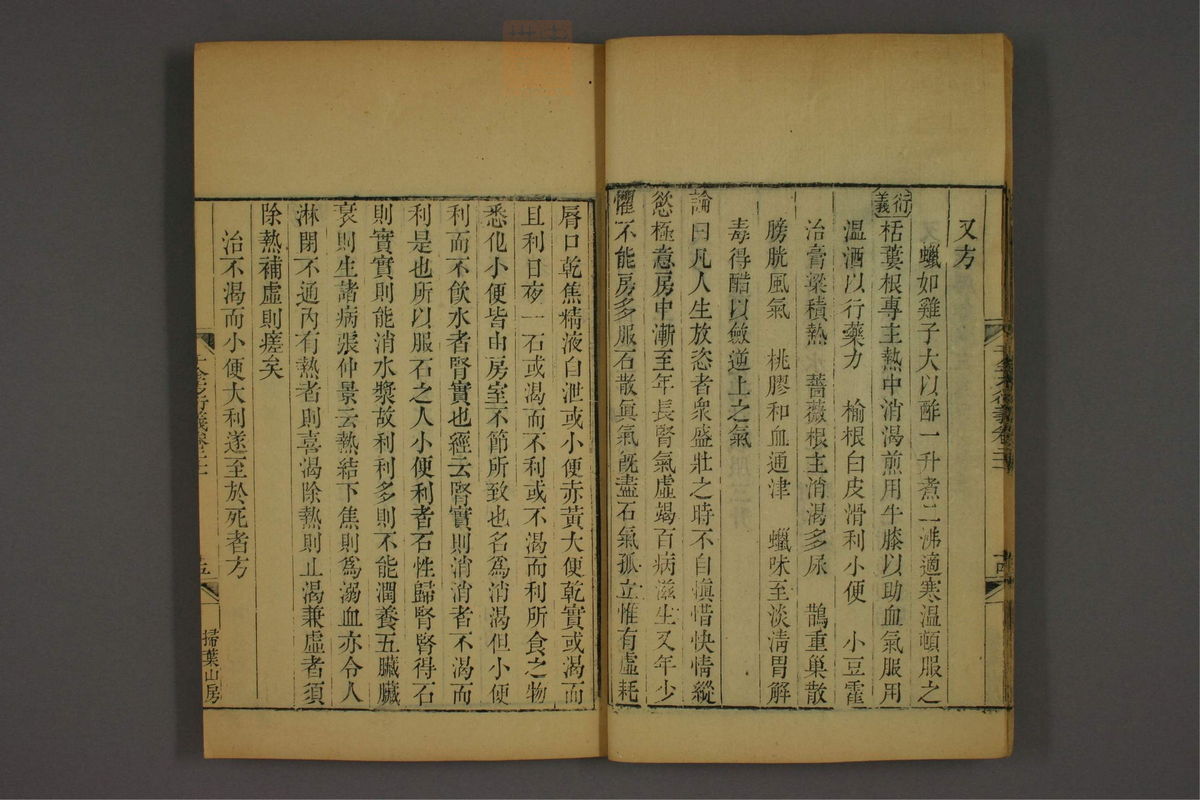 又方
蠟如雞子大以酢一升煮二沸適寒溫頓服之
衍義
栝蔞根專主熱中消渴煎用牛膝以助血氣服用
溫酒以行藥力　榆根白皮滑利小便　小豆藿
治膏粱積熱　薔薇根主消渴多尿　鵲重巢散
膀胱風氣　桃膠和血通津　蠟味至淡清胃解
毒得醋以斂逆上之氣
論曰凡人生放恣者衆盛壯之時不自愼惜快情縱
慾極意房中漸至年長腎氣虛竭百病滋生又年少
懼不能房多服石散眞氣旣盡石氣孤立惟有虛耗
脣口乾焦精液自泄或小便赤黃大便乾實或渴而
且利日夜一石或渴而不利或不渴而利所食之物
悉化小便皆由房室不節所致也名爲消渴但小便
利而不飲水者腎實也經云腎實則消消者不渴而
利是也所以服石之人小便利者石性歸腎腎得石
則實實則能消水漿故利利多則不能潤養五臟臟
衰則生諸病張仲景云熱結下焦則爲溺血亦令人
淋閉不通內有熱者則喜渴除熱則止渴兼虛者須
除熱補虛則瘥矣
治不渴而小便大利遂至於死者方
掃葉山房